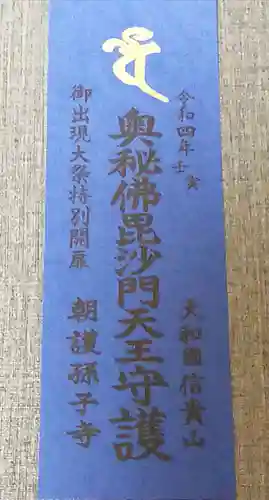 令和四年壬寅
大和國信貴山
奥秘佛毘沙門天王守護
御出現大祭特別開扉
朝護孫子寺